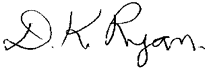 D. K. Ryan.